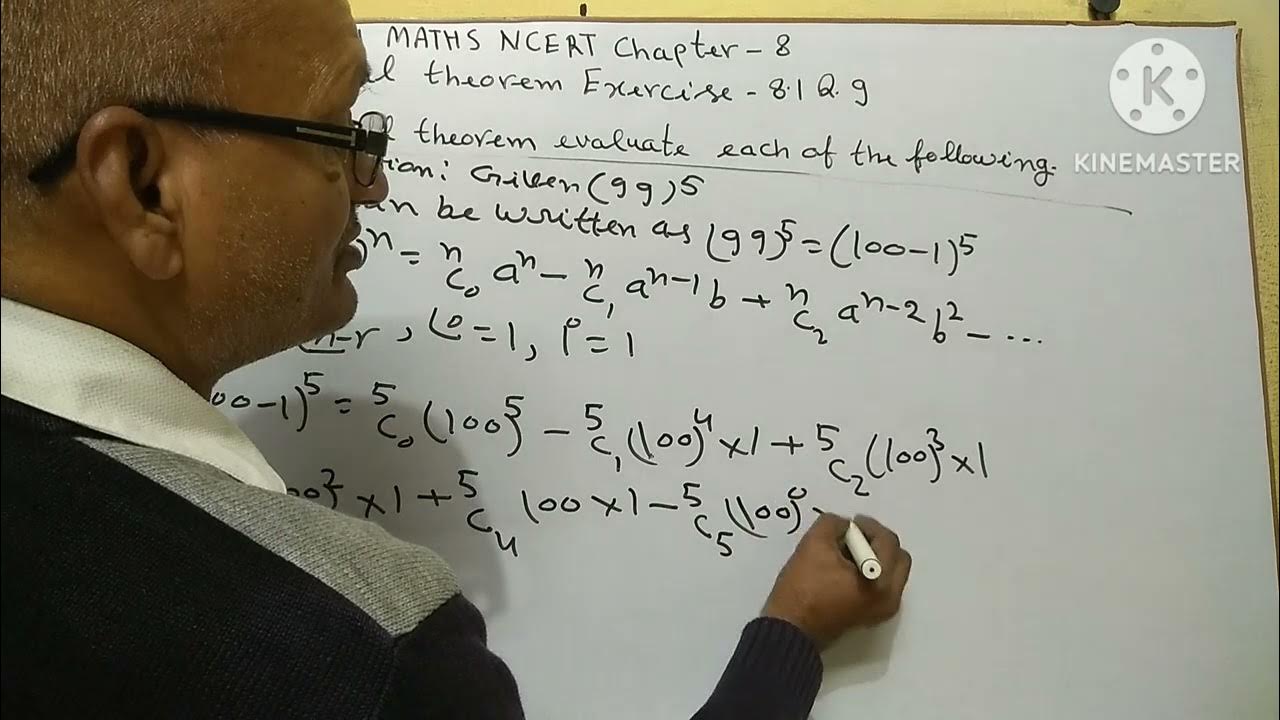 MATHS NCERT Chapter - 8
theorem Exercise - 8.1 Q.9
theorem evaluate each of the following.
Given (99)⁵
be written as (99)⁵ = (100-1)⁵
ⁿ = ⁿC₀ aⁿ - ⁿC₁ aⁿ⁻¹b + ⁿC₂ aⁿ⁻²b² - ...
n-r, = 1, 1⁰ = 1
00-1)⁵ = ⁵C₀ (100)⁵ - ⁵C₁ (100)⁴ × 1 + ⁵C₂ (100)³ × 1
× 1 + ⁵C₄ 100 × 1 - ⁵C₅ (100)⁰ ×
K
KINEMASTER